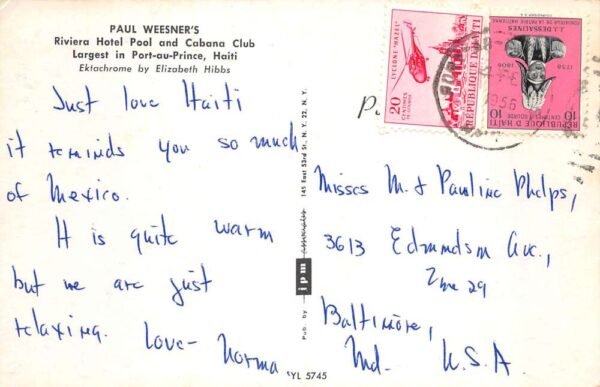 PAUL WEESNER'S
Riviera Hotel Pool and Cabana Club
Largest in Port-au-Prince, Haiti
Ektachrome by Elizabeth Hibbs
Just love Haiti
it reminds you so much
of Mexico.
It is quite warm
but we are just
relaxing.
Love- Norma
YL 5745
Pub. by jpm
145 East 53rd St., N. Y. 22, N. Y.
P.
CYCLONE "HAZEL"
20
CENTIMES
REPUBLIQUE D'HAITI
J. J. DESSALINES
FONDATEUR DE LA PATRIE HAITIENNE
1758
1806
10
CENTIMES DE GOURDE
10
REPUBLIQUE D'HAITI
1956
Misses M. & Pauline Phelps,
3613 Edmondson Ave.,
Zone 29
Baltimore,
Md. U.S.A.